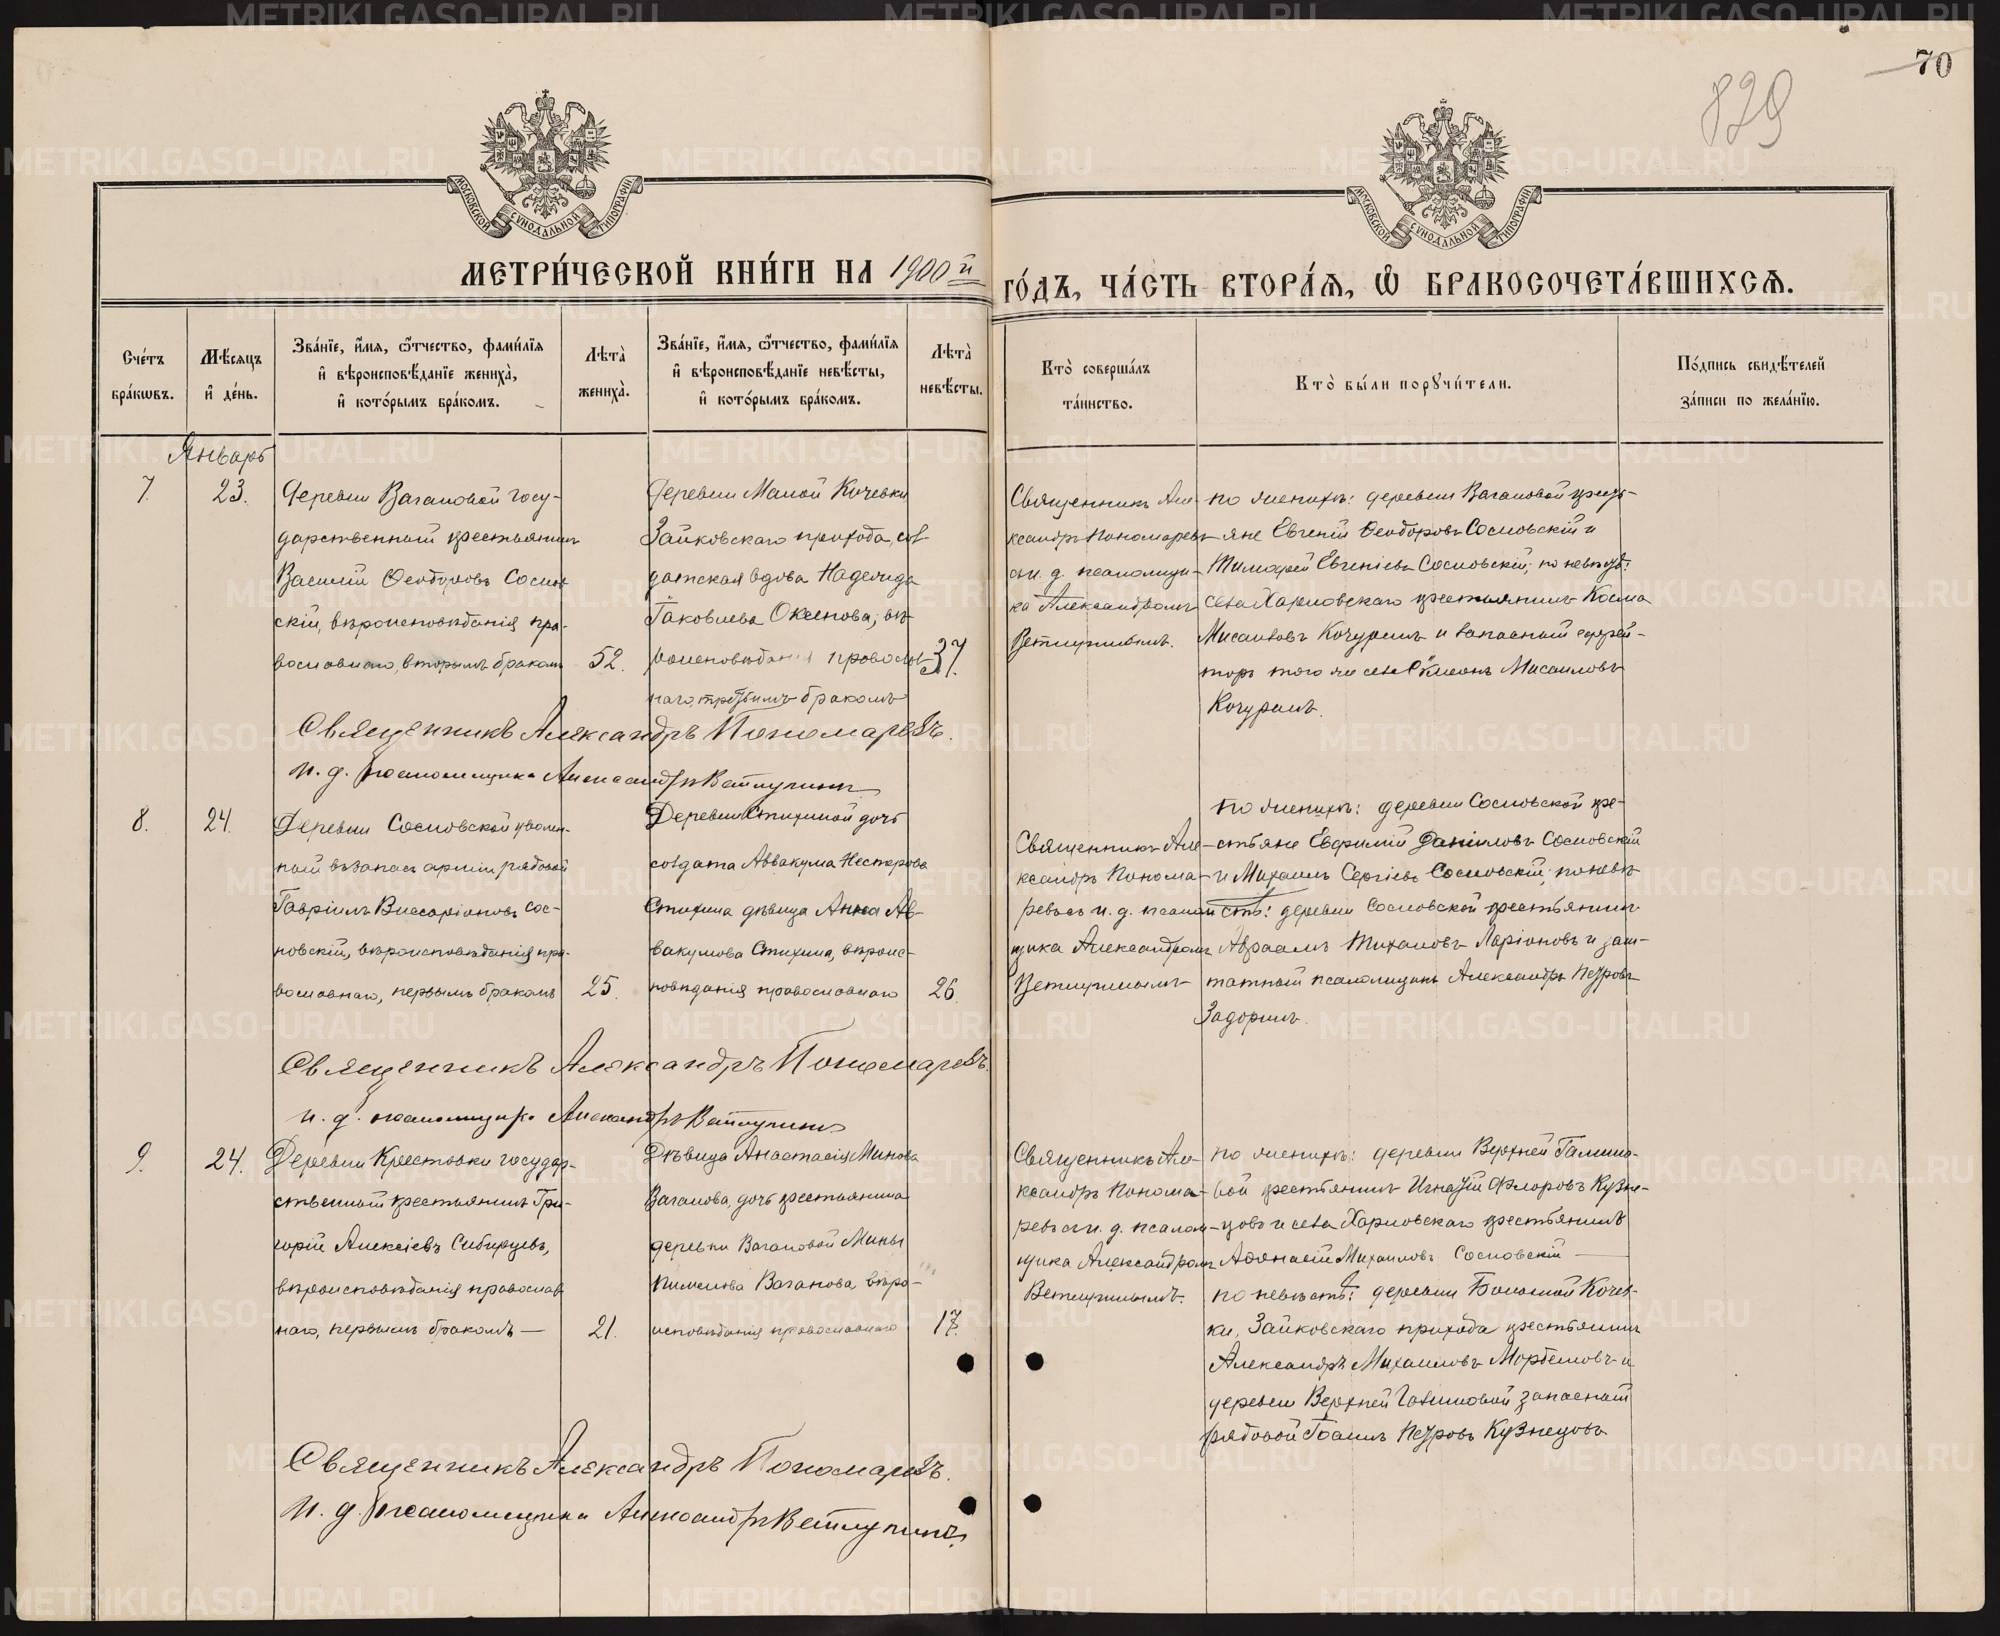 70
829
МОСКОВСКОЙ СѴНОДАЛЬНОЙ ТИПОГРАФІИ
МОСКОВСКОЙ СѴНОДАЛЬНОЙ ТИПОГРАФІИ
МЕТРИ́ЧЕСКОЙ КНИ́ГИ НА 1900й
ГО́ДЪ, ЧА́СТЬ ВТОРА́Ѧ, Ѽ БРАКОСОЧЕТА́ВШИХСѦ.
Сче́тъ бра́кѡвъ.
Мѣ́сѧцъ и҆ де́нь.
Зва́нїе, и҆́мѧ, ѻ҆́тчество, фами́лїѧ
и҆ вѣроисповѣ́данїе жениха̀,
и҆ кото́рымъ бра́комъ.
Лѣта̀ жениха̀.
Зва́нїе, и҆́мѧ, ѻ҆́тчество, фами́лїѧ
и҆ вѣроисповѣ́данїе невѣ́сты,
и҆ кото́рымъ бра́комъ.
Лѣта̀ невѣ́сты.
Кто̀ соверша́лъ
та́инство.
Кто̀ бы́ли порꙋчи́тели.
По́дпись свидѣ́телей
за́писи по жела́нїю.
Январь
7.
23.
Деревни Вагановой госу-
дарственный крестьянинъ
Василій Ѳеодоровъ Соснов
скій, вѣроисповѣданія пра-
вославнаго, вторымъ бракомъ
52.
Деревни Малой Кочевки
Зайковскаго прихода, сол
датская вдова Надежда
Іаковлева Оксенова, вѣ-
роисповѣданія православ-
наго, третьимъ бракомъ
37.
Священникъ Але-
ксандръ Пономаревъ
съ и. д. псаломщи-
ка Александромъ
Ветлугинымъ.
по женихѣ: деревни Вагановой кресть-
яне Евгеній Ѳеодоровъ Сосновскій и
Тимоѳей Евгеніевъ Сосновскій; по невѣстѣ:
села Харловскаго крестьянинъ Косма
Мисаиловъ Кочуринъ и запасный ефрей-
торъ того же села Симеонъ Мисаиловъ
Кочуринъ.
Священникъ Александръ Пономаревъ.
И. д. псаломщика Александръ Ветлугинъ
8.
24.
Деревни Сосновской уволен-
ный въ запасъ арміи рядовой
Гавріилъ Виссаріоновъ Сос-
новскій, вѣроисповѣданія пра-
вославнаго, первымъ бракомъ
25.
Деревни Стихиной дочь
солдата Аввакума Нестерова
Стихина дѣвица Анна Ав-
вакумова Стихина, вѣроис-
повѣданія православнаго
26.
Священникъ Але-
ксандръ Понома-
ревъ съ и. д. псалом
щика Александромъ
Ветлугинымъ
по женихѣ: деревни Сосновской кре-
стьяне Евфимій Даніиловъ Сосновскій
и Михаилъ Сергіевъ Сосновскій; по невѣ
стѣ: деревни Сосновской крестьянинъ
Авраамъ Михаиловъ Ларіоновъ и заш-
татный псаломщикъ Александръ Петровъ
Задоринъ.
Священникъ Александръ Пономаревъ.
И. д. псаломщика Александръ Ветлугинъ
9.
24.
Деревни Крестовки государ-
ственный крестьянинъ Гри-
горій Алексіевъ Сибирцевъ,
вѣроисповѣданія православ
наго, первымъ бракомъ —
21.
Дѣвица Анастасія Минова
Ваганова, дочь крестьянина
деревни Вагановой Мины
Пименова Ваганова вѣро-
исповѣданія православнаго
17.
Священникъ Але-
ксандръ Понома-
ревъ съ и. д. псалом-
щика Александромъ
Ветлугинымъ.
по женихѣ: деревни Верхней Галиша-
вой крестьянинъ Игнатій Флоровъ Кузне-
цовъ и села Харловскаго крестьянинъ
Аѳанасій Михаиловъ Сосновскій —
по невѣстѣ: деревни Большой Кочев-
ки, Зайковскаго прихода крестьянинъ
Александръ Михаиловъ и
деревни Верхней запасный
рядовой Іоаннъ Петровъ Кузнецовъ
Священникъ Александръ Пономаревъ.
И. д. псаломщика Александръ Ветлугинъ.